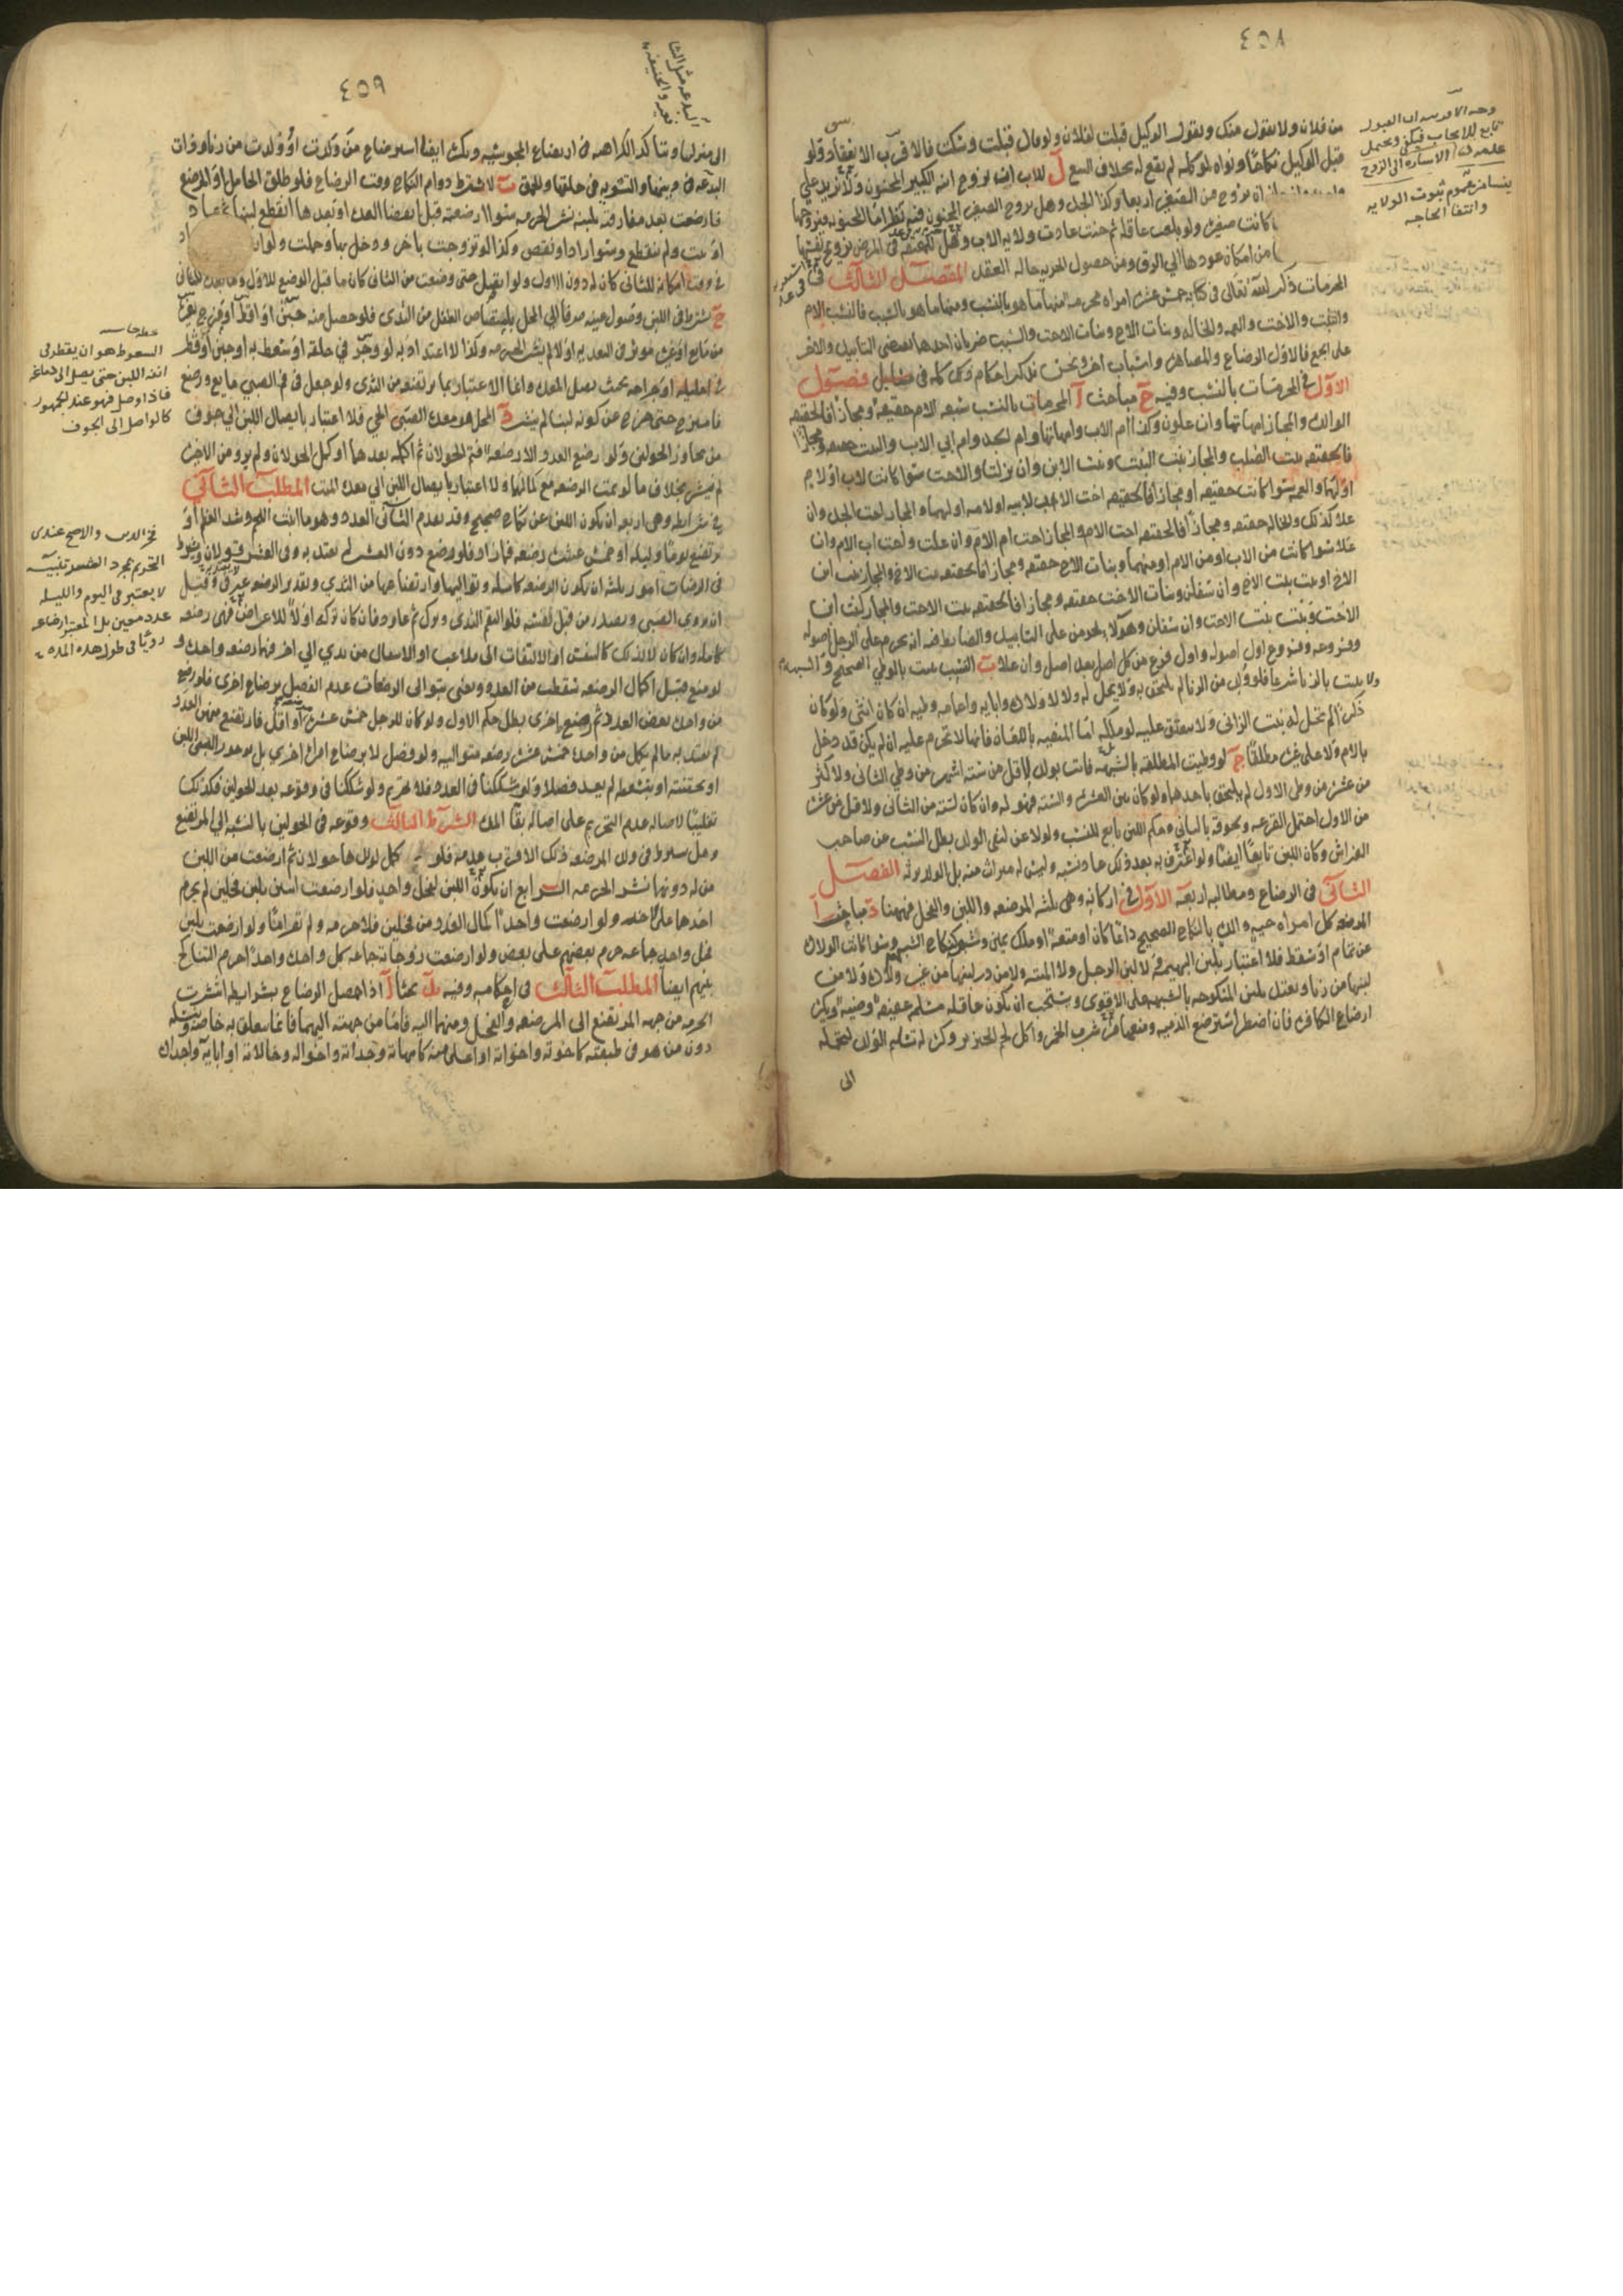 ٤٥٨
من فلان ولا يقول منك ويقول الوكيل قبلت لفلان ولو قال قبلت وسكت فالاقرب الانعقاد ولو
قبل الوكيل نكاحا ونواه لموكله لم يقع له بخلاف البيع ل للاب ان يزوج ابنه الكبير المجنون ولا يزيد على
ان يزوج من الصغير اربعا وكذا الجد وهل يزوج الصغير المجنون فيه نظر اما المجنونه فيزوجها
كانت صغيرة ولو بلغت عاقلة ثم جنت عادت ولاية الاب وهل للمعتقة في المرض تزويج نفسها
من امكان عودها الى الرق ومن حصول الحرية حاله العقد المقصد الثالث في
المحرمات ذكر الله تعالى في كتابه خمس عشرة امراة محرمة منها ما هو بالنسب ومنها ما هو بالسبب فالنسب الام
والبنت والاخت والعمه والخاله وبنات الاخ وبنات الاخت والسبب ضربان احدهما يقتضي التابيد والاخر
على الجمع فالاول الرضاع والمصاهرة واسباب اخر ونحن نذكر احكام ذلك كله في فصول
الاول في المحرمات بالنسب وفيه مباحث ا المحرمات بالنسب سبعه الام حقيقة ومجازا فالحقيقه
الوالدة والمجاز امهاتها وان علون وكذا ام الاب وامهاتها وام الجد وام ابي الاب والبنت حقيقه ومجازا
فالحقيقه بنت الصلب والمجاز بنت البنت وبنت الابن وان نزلت والاخت سوا كانت لاب او لام
او لهما والعمه سوا كانت حقيقه او مجازا فالحقيقه اخت الاب لابيه او لامه او لهما والمجاز اخت الجد وان
علا كذلك والخاله حقيقه ومجازا فالحقيقه اخت الام والمجاز اخت ام الام وان علت واخت اب الام وان
علا سوا كانت من الاب او من الام او منهما وبنات الاخ حقيقه ومجازا فالحقيقه بنت الاخ والمجاز بنت ابن
الاخ او بنت بنت الاخ وان سفلن وبنات الاخت حقيقه ومجازا فالحقيقه بنت الاخت والمجاز كبنت ابن
الاخت وبنت بنت الاخت وان سفلن وهولاء يحرمن على التابيد والضابط فيه انه يحرم على الرجل اصوله
وفروعه وفروع اول اصوله واول فرع من كل اصل بعد اصل وان علا ب النسب يثبت بالوطي الصحيح والشبهه
ولا يثبت بالزنا شرعا فلو ولد من الزنا لم يلحق به ولا يحل له ولا لاولاده وابايه واعمامه وطيه ان كان انثى ولو كان
ذكرا لم تحل له بنت الزاني ولا يعتق عليه لو ملكه اما المنفيه باللعان فانها لا تحرم عليه ان لم يكن قد دخل
بالام ولا على غيره مطلقا ج لو وطيت المطلقة بالشبهه فاتت بولد لاقل من سته اشهر من وطي الثاني ولاكثر
من عشرة من وطي الاول لم يلحق باحدهما ولو كان بين العشرة والسته فهو له وان كان لسته من الثاني ولاقل من عشرة
من الاول احتمل القرعه ولحوقه بالثاني وحكم اللبن تابع للنسب ولو لاعن لنفي الولد بطل النسب عن صاحب
الفراش وكان اللبن تابعا ايضا ولو اعترف به بعد ذلك عاد نسبه وليس له ميراث منه بل الولد يرثه الفصل
الثاني في الرضاع ومطالبه اربعة الاول في اركانه وهي ثلثه المرضعه واللبن والمحل فههنا مباحث ا
المرضعه كل امراه حيه والدة بالنكاح الصحيح دائما كان او متعة او ملك يمين وشبهه كنكاح الشبهه وسوا كانت الولادة
عن تمام او سقط فلا اعتبار بلبن البهيمة ولا لبن الرجل ولا الميته ولا من در لبنها من غير ولادة ولا من
لبنها من زنا ويعتد بلبن المنكوحه بالشبهه على الاقوى ويستحب ان يكون عاقلة مسلمة عفيفة وضيئة ويكره
ارضاع الكافره فان اضطر استرضع الذميه ومنعها من شرب الخمر واكل لحم الخنزير وكره له تسليم الولد لتحمله
الى
وانتفا الحاجه
ثبوت الولايه
٤٥٩
الى منزلها وتتاكد الكراهه في ارضاع المجوسيه ويكره ايضا استرضاع من ولدت او ولدت من زنا وذات
البدعه في دينها والتشويه في خلقها والحمق ب لا يشترط دوام النكاح وقت الرضاع فلو طلق الحامل او المرضع
فارضعت بعد مفارقته بلبنه نشر الحرمه سوا ارضعته قبل انقضا العدة او بعدها انقطع لبنها ثم عاد
او ثبت ولم ينقطع وسوا زاد او نقص وكذا لو تزوجت باخر ودخل بها وحملت ولو زاد
في وقت امكانه للثاني كان له دون الاول ولو اتصل حتى وضعت من الثاني كان ما قبل الوضع للاول وما بعده للثاني
ج يشترط في اللبن وصول عينه صرفا الى المحل بامتصاص الطفل من الثدي فلو حصل منه جبن او اقط او مزج بغيره
من مايع او غيره مؤثر في التعديه او لا لم ينشر الحرمه وكذا لا اعتداد به لو وجر في حلقه او سعط به او حقن او قطر
في احليله او جراحه بحيث يصل المعدة وانما الاعتبار بما يرتضع من الثدي ولو جعل في فم الصبي مايع ورضع
فامتزج حتى خرج عن كونه لبنا لم ينشر د المحل هو معدة الصبي الحي فلا اعتبار بايصال اللبن الى جوف
من تجاوز الحولين ولو رضع العدد الا رضعة فتم الحولان ثم اكمله بعدهما او كمل الحولان ولم يرو من الاخيرة
لم ينشر بخلاف ما لو تمت الرضعه مع كمالها ولا اعتبار بايصال اللبن الى معدة الميت المطلب الثاني
في شرايطه وهي اربعه ان يكون اللبن عن نكاح صحيح وقد تقدم الثاني العدد وهو ما انبت اللحم وشد العظم او
يرتضع يوما وليله او خمس عشرة رضعه فما زاد فلو رضع دون العشر لم يعتد به وفي العشر قولان ويشترط
في الرضعات امور ثلثه ان تكون الرضعه كامله وتواليها وارتضاعها من الثدي وتقدير الرضعه عرفي وقيل
ان يروي الصبي ويصدر من قبل نفسه فلو التقم الثدي وترك ثم عاود فان كان تركه اولا للاعراض فهي رضعه
كاملة وان كان لا لذلك كالتنفس او الالتفات الى ملاعب او الانتقال من ثدي الى اخر فهما رضعه واحدة و
لو منع قبل اكمال الرضعه سقطت من العدد ونعني بتوالي الرضعات عدم الفصل برضاع اخرى فلو رضع
من واحدة بعض العدد ثم رضع اخرى بطل حكم الاول ولو كان للرجل خمس عشرة او اقل فارتضع منهن العدد
لم يعتد به ما لم يكمل من واحدة خمس عشرة رضعه متواليه ولو فصل لا برضاع امراة اخرى بل بوجور الصبي اللبن
او بحقنته او بسعوطه لم يعد فصلا ولو شككنا في العدد فلا تحريم ولو شككنا في وقوعه بعد الحولين فكذلك
تغليبا لاصالة عدم التحريم على اصالة بقا المدة الشرط الثالث وقوعه في الحولين بالنسبه الى المرتضع
وهل يشترط في ولد المرضعه ذلك الاقرب عدمه فلو كمل لولدها حولان ثم ارضعت من اللبن
من له دونهما نشر الحرمه الرابع ان يكون اللبن لفحل واحد فلو ارضعت اثنين بلبن فحلين لم يحرم
احدهما على الاخر ولو ارضعت واحدا كمال العدد من فحلين فلا حرمه ولم تقدر امها ولو ارضعت بلبن
فحل واحد جماعه حرم بعضهم على بعض ولو ارضعت زوجاته جماعه كل واحدة واحدا حرم التناكح
بينهم ايضا المطلب الثالث في احكامه وفيه بحثا ا اذا حصل الرضاع بشرايطه انتشرت
الحرمه من جهه المرتضع الى المرضعه والفحل ومنهما اليه فاما من جهته اليهما فانما يتعلق به خاصة ونسله
دون من هو في طبقته كاخوته واخواته او اعلى منه كامهاته وجداته واخواله وخالاته او ابايه واجداده
السعوط هو ان يقطر في
انفه اللبن حتى يصل الى دماغه
فاذا وصل فهو عند الجمهور
كالواصل الى الجوف
فخر الدين والاصح عندي
لا يعتبر في اليوم والليله
عدد معين بل المعتبر ارضاعه
رويا في طول هذه المدة